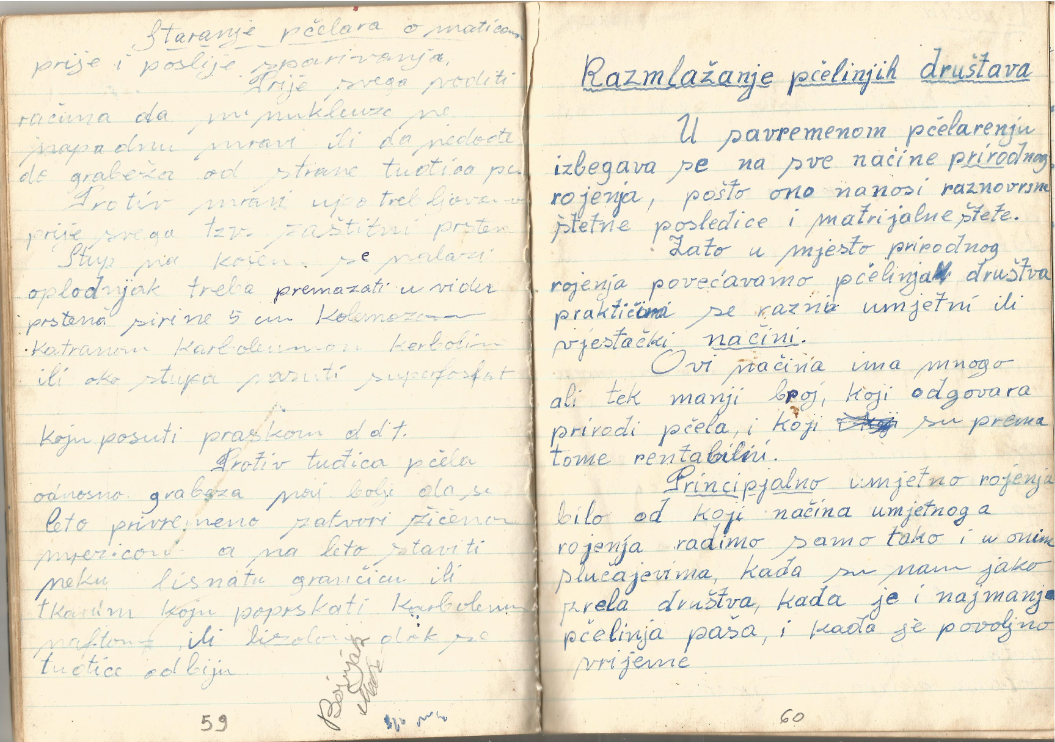 Staranje pčelara o maticam
prije i poslije sparivanja.
Prije svega voditi
računa da nukleuse ne
napadnu mravi ili da nedođe
do grabeža od strane tuđica
Protiv mravi upotrebljavamo
prije svega tzv. zaštitni prsten
Stup na se nalazi
oplodnjak treba premazati u vidu
prstena širine 5 cm
Katranom
ili oko stupa posuti superfosfat
koju posuti praškom ddt.
Protiv tuđica pčela
odnosno grabeža naj bolje da se
leto privremeno zatvori žičenom
mrežicom a na leto staviti
neku lisnatu grančicu ili
tkaninu koju poprskati
naftom ili lizolom dok se
tuđice odbiju
59
Razmlažanje pčelinjih društava
U savremenom pčelarenju
izbegava se na sve načine prirodnog
rojenja, pošto ono nanosi raznovrsne
štetne posledice i matrijalne štete.
Zato u mjesto prirodnog
rojenja povećavamo društva
se razni umjetni ili
vještački načini.
Ovi načina ima mnogo
ali tek manji broj, koji odgovara
prirodi pčela, i koji su prema
tome rentabilni.
Principjalno umjetno rojenja
bilo od koji načina umjetnoga
rojenja radimo samo tako i u onim
slučajevima, kada su nam jako
zrela društva, kada je i najmanje
pčelinja paša, i kada je povoljno
vrijeme
60